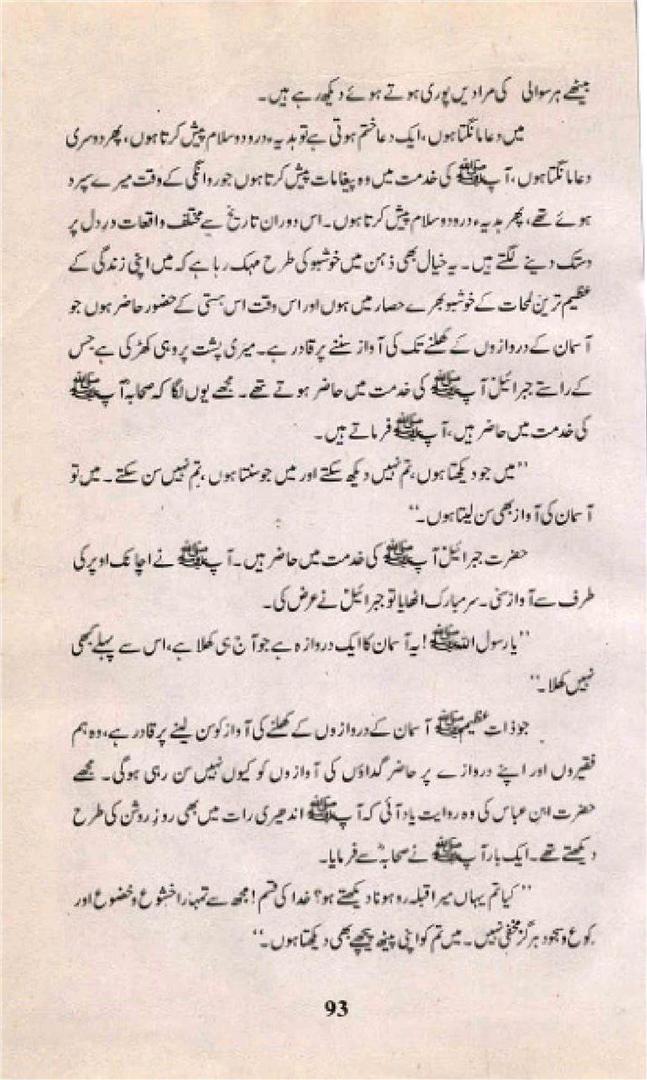 بیٹھے ہر سوالی کی مرادیں پوری ہوتے ہوئے دیکھ رہے ہیں۔
میں دعا مانگتا ہوں، ایک دعا ختم ہوتی ہے تو ہدیہء درود و سلام پیش کرتا ہوں، پھر دوسری
دعا مانگتا ہوں، آپ ﷺ کی خدمت میں وہ پیغامات پیش کرتا ہوں جو روانگی کے وقت میرے سپرد
ہوئے تھے، پھر ہدیہء درود و سلام پیش کرتا ہوں۔ اس دوران تاریخ سے مختلف واقعات درِ دل پر
دستک دینے لگتے ہیں۔ یہ خیال بھی ذہن میں خوشبو کی طرح مہک رہا ہے کہ میں اپنی زندگی کے
عظیم ترین لمحات کے خوشبو بھرے حصار میں ہوں اور اس وقت اس ہستی کے حضور حاضر ہوں جو
آسمان کے دروازوں کے کھلنے تک کی آواز سننے پر قادر ہے۔ میری پشت پر وہی کھڑکی ہے جس
کے راستے جبرائیلؑ آپ ﷺ کی خدمت میں حاضر ہوتے تھے۔ مجھے یوں لگا کہ صحابہؓ آپ ﷺ
کی خدمت میں حاضر ہیں، آپ ﷺ فرماتے ہیں۔
"میں جو دیکھتا ہوں، تم نہیں دیکھ سکتے اور میں جو سنتا ہوں، تم نہیں سن سکتے۔ میں تو
آسمان کی آواز بھی سن لیتا ہوں۔"
حضرت جبرائیلؑ آپ ﷺ کی خدمت میں حاضر ہیں۔ آپ ﷺ نے اچانک اوپر کی
طرف سے آواز سنی۔ سر مبارک اٹھایا تو جبرائیلؑ نے عرض کی۔
"یا رسول اللہ ﷺ! یہ آسمان کا ایک دروازہ ہے جو آج ہی کھلا ہے، اس سے پہلے کبھی
نہیں کھلا۔"
جو ذات عظیم ﷺ آسمان کے دروازوں کے کھلنے کی آواز کو سن لینے پر قادر ہے، وہ ہم
فقیروں اور اپنے دروازے پر حاضر گداؤں کی آوازوں کو کیوں نہیں سن رہی ہوگی۔ مجھے
حضرت ابن عباس کی وہ روایت یاد آئی کہ آپ ﷺ اندھیری رات میں بھی روزِ روشن کی طرح
دیکھتے تھے۔ ایک بار آپ ﷺ نے صحابہؓ سے فرمایا۔
"کیا تم یہاں میرا قبلہ رو ہونا دیکھتے ہو؟ خدا کی قسم! مجھ سے تمہارا خشوع و خضوع اور
رکوع و سجود ہرگز مخفی نہیں۔ میں تم کو اپنی پیٹھ پیچھے بھی دیکھتا ہوں۔"
93